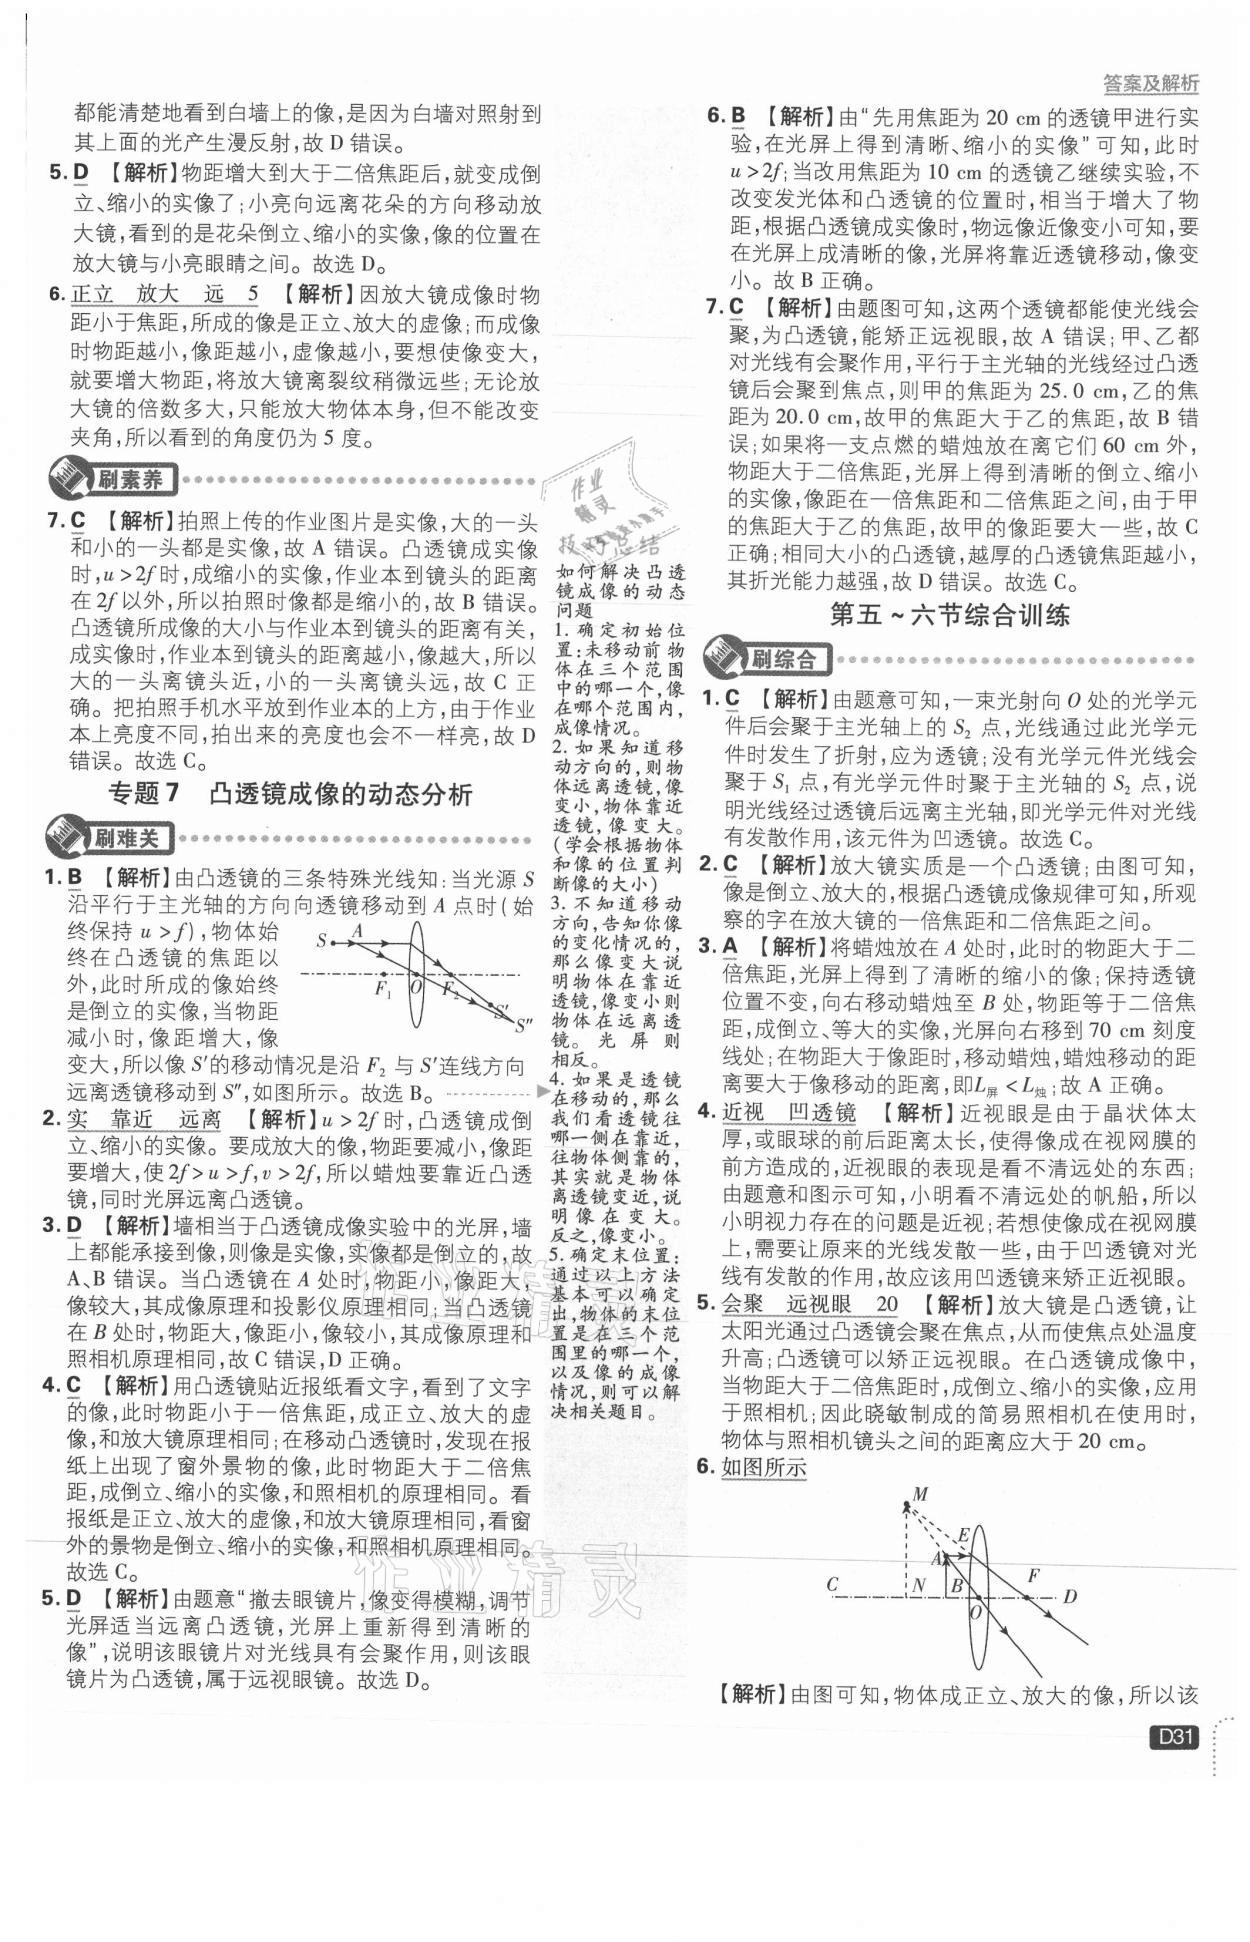 答案及解析
都能清楚地看到白墙上的像,是因为白墙对照射到
其上面的光产生漫反射,故 D 错误。
5. D 【解析】物距增大到大于二倍焦距后,就变成倒
立、缩小的实像了;小亮向远离花朵的方向移动放
大镜,看到的是花朵倒立、缩小的实像,像的位置在
放大镜与小亮眼睛之间。故选 D。
6. 正立 放大 远 5 【解析】因放大镜成像时物
距小于焦距,所成的像是正立、放大的虚像;而成像
时物距越小,像距越小,虚像越小,要想使像变大,
就要增大物距,将放大镜离裂纹稍微远些;无论放
大镜的倍数多大,只能放大物体本身,但不能改变
夹角,所以看到的角度仍为 5 度。
刷素养
7. C 【解析】拍照上传的作业图片是实像,大的一头
和小的一头都是实像,故 A 错误。凸透镜成实像
时,u>2f时,成缩小的实像,作业本到镜头的距离
在2f以外,所以拍照时像都是缩小的,故 B 错误。
凸透镜所成像的大小与作业本到镜头的距离有关,
成实像时,作业本到镜头的距离越小,像越大,所以
大的一头离镜头近,小的一头离镜头远,故 C 正
确。把拍照手机水平放到作业本的上方,由于作业
本上亮度不同,拍出来的亮度也会不一样亮,故 D
错误。故选 C。
专题 7 凸透镜成像的动态分析
刷难关
1. B 【解析】由凸透镜的三条特殊光线知:当光源 S
沿平行于主光轴的方向向透镜移动到 A 点时(始
终保持 u>f),物体始
终在凸透镜的焦距以
外,此时所成的像始终
是倒立的实像,当物距
减小时,像距增大,像
S A F1 O F2 S′ S″
变大,所以像 S′的移动情况是沿 F2 与 S′连线方向
远离透镜移动到 S″,如图所示。故选 B。
2. 实 靠近 远离 【解析】u>2f时,凸透镜成倒
立、缩小的实像。要成放大的像,物距要减小,像距
要增大,使 2f>u>f,v>2f,所以蜡烛要靠近凸透
镜,同时光屏远离凸透镜。
3. D 【解析】墙相当于凸透镜成像实验中的光屏,墙
上都能承接到像,则像是实像,实像都是倒立的,故
A、B 错误。当凸透镜在 A 处时,物距小,像距大,
像较大,其成像原理和投影仪原理相同;当凸透镜
在 B 处时,物距大,像距小,像较小,其成像原理和
照相机原理相同,故 C 错误,D 正确。
4. C 【解析】用凸透镜贴近报纸看文字,看到了文字
的像,此时物距小于一倍焦距,成正立、放大的虚
像,和放大镜原理相同;在移动凸透镜时,发现在报
纸上出现了窗外景物的像,此时物距大于二倍焦
距,成倒立、缩小的实像,和照相机的原理相同。看
报纸是正立、放大的虚像,和放大镜原理相同,看窗
外的景物是倒立、缩小的实像,和照相机原理相同。
故选 C。
5. D 【解析】由题意“撤去眼镜片,像变得模糊,调节
光屏适当远离凸透镜,光屏上重新得到清晰的
像”,说明该眼镜片对光线具有会聚作用,则该眼
镜片为凸透镜,属于远视眼镜。故选 D。
技巧总结
如何解决凸透
镜成像的动态
问题
1. 确定初始位
置:未移动前物
体在三个范围
中的哪一个,像
在哪个范围内,
成像情况。
2. 如果知道移
动方向的,则物
体远离透镜,像
变小,物体靠近
透镜,像变大。
(学会根据物体
和像的位置判
断像的大小)
3. 不知道移动
方向,告知你像
的变化情况的,
那么像变大说
明物体在靠近
透镜,像变小则
物体在远离透
镜。光屏则
相反。
4. 如果是透镜
在移动的,那么
我们看透镜往
哪一侧在靠近,
往物体侧靠的,
其实就是物体
离透镜变近,说
明像在变大。
反之,像变小。
5. 确定末位置:
通过以上方法
基本可以确定
出,物体的末位
置是在三个范
围里的哪一个,
以及像的成像
情况,则可以解
决相关题目。
6. B 【解析】由“先用焦距为 20 cm 的透镜甲进行实
验,在光屏上得到清晰、缩小的实像”可知,此时
u>2f;当改用焦距为 10 cm 的透镜乙继续实验,不
改变发光体和凸透镜的位置时,相当于增大了物
距,根据凸透镜成实像时,物远像近像变小可知,要
在光屏上成清晰的像,光屏将靠近透镜移动,像变
小。故 B 正确。
7. C 【解析】由题图可知,这两个透镜都能使光线会
聚,为凸透镜,能矫正远视眼,故 A 错误;甲、乙都
对光线有会聚作用,平行于主光轴的光线经过凸透
镜后会聚到焦点,则甲的焦距为 25.0 cm,乙的焦
距为 20.0 cm,故甲的焦距大于乙的焦距,故 B 错
误;如果将一支点燃的蜡烛放在离它们 60 cm 外,
物距大于二倍焦距,光屏上得到清晰的倒立、缩小
的实像,像距在一倍焦距和二倍焦距之间,由于甲
的焦距大于乙的焦距,故甲的像距要大一些,故 C
正确;相同大小的凸透镜,越厚的凸透镜焦距越小,
其折光能力越强,故 D 错误。故选 C。
第五~六节综合训练
刷综合
1. C 【解析】由题意可知,一束光射向 O 处的光学元
件后会聚于主光轴上的 S2 点,光线通过此光学元
件时发生了折射,应为透镜;没有光学元件光线会
聚于 S1 点,有光学元件时聚于主光轴的 S2 点,说
明光线经过透镜后远离主光轴,即光学元件对光线
有发散作用,该元件为凹透镜。故选 C。
2. C 【解析】放大镜实质是一个凸透镜;由图可知,
像是倒立、放大的,根据凸透镜成像规律可知,所观
察的字在放大镜的一倍焦距和二倍焦距之间。
3. A 【解析】将蜡烛放在 A 处时,此时的物距大于二
倍焦距,光屏上得到了清晰的缩小的像;保持透镜
位置不变,向右移动蜡烛至 B 处,物距等于二倍焦
距,成倒立、等大的实像,光屏向右移到 70 cm 刻度
线处;在物距大于像距时,移动蜡烛,蜡烛移动的距
离要大于像移动的距离,即L屏<L烛;故 A 正确。
4. 近视 凹透镜 【解析】近视眼是由于晶状体太
厚,或眼球的前后距离太长,使得像成在视网膜的
前方造成的,近视眼的表现是看不清远处的东西;
由题意和图示可知,小明看不清远处的帆船,所以
小明视力存在的问题是近视;若想使像成在视网膜
上,需要让原来的光线发散一些,由于凹透镜对光
线有发散的作用,故应该用凹透镜来矫正近视眼。
5. 会聚 远视眼 20 【解析】放大镜是凸透镜,让
太阳光通过凸透镜会聚在焦点,从而使焦点处温度
升高;凸透镜可以矫正远视眼。在凸透镜成像中,
当物距大于二倍焦距时,成倒立、缩小的实像,应用
于照相机;因此晓敏制成的简易照相机在使用时,
物体与照相机镜头之间的距离应大于 20 cm。
6. 如图所示
M
A E
C N B O F D
【解析】由图可知,物体成正立、放大的像,所以该
D31
作业精灵
作业精灵
作业精灵